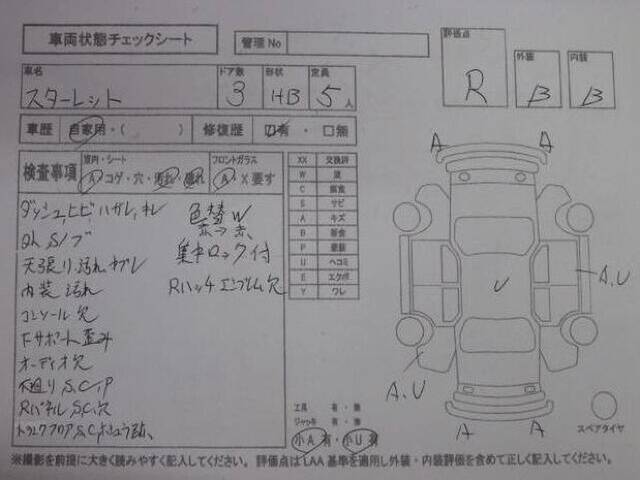 車両状態チェックシート
管理No
評価点
R
外装
B
内装
B
車名
スターレット
ドア数
3
形状
HB
定員
5人
車歴 自家用・( ) 修復歴 □有・□無
検査事項
室内・シート
A コゲ・穴・汚れ・破れ
フロントガラス
A X要す
XX 交換跡
W 波
C 腐食
S サビ
A キズ
B
P
U ヘコミ
E エクボ
Y ワレ
ダッシュヒビ、ハガレ、キレ
色替W
赤→赤、
天張り汚れキブレ
集中ロック付
内装汚れ
Rハッチエンブレム欠
コンソール欠
Fサポート歪み
オーディオ欠
下廻りS,C,P
RパネルS,C,穴
A
A
U
A,U
A,U
A
A
工具 有・無
ジャッキ 有・無
小A有・小U有
スペアタイヤ
※撮影を前提に大きく読みやすく記入してください。 評価点はLAA基準を適用し外装・内装評価を含めて正しく記入してください。